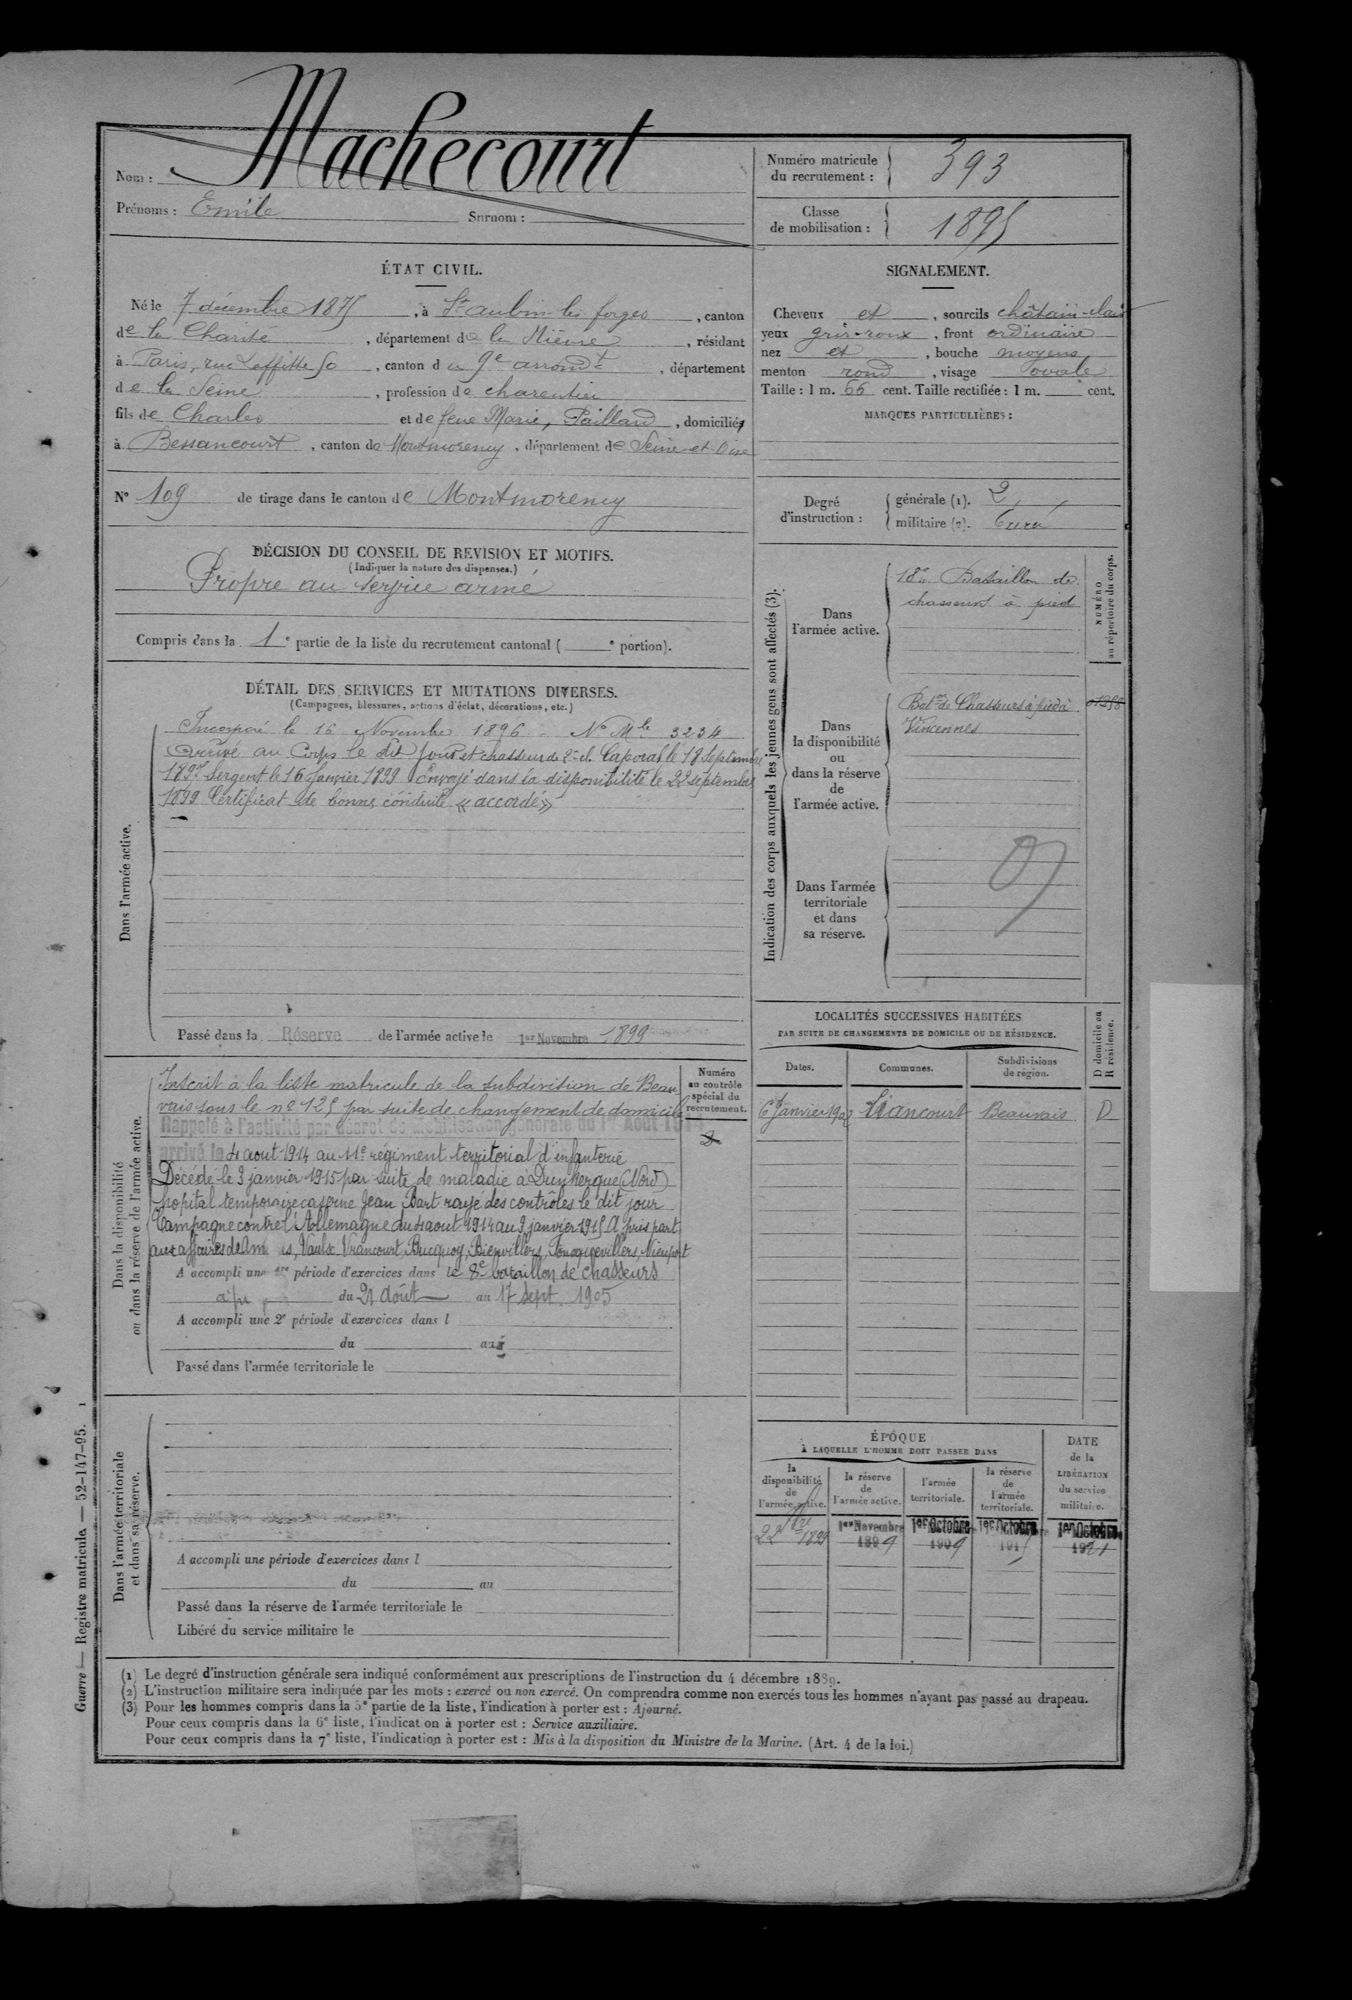 Nom : Machecourt
Prénoms : Emile Surnom :
Numéro matricule du recrutement : 393
Classe de mobilisation : 1895
ÉTAT CIVIL.
Né le 7 décembre 1875, à St aubin les forges, canton
de la Charité, département de la Nièvre, résidant
à Paris, rue Laffitte 50, canton du 9e arrondt, département
de la Seine, profession de charcutier
fils de Charles et de feue Marie, Paillard, domiciliés
à Bessancourt, canton de Montmorency, département de Seine-et-Oise
N° 109 de tirage dans le canton de Montmorency
SIGNALEMENT.
Cheveux et, sourcils châtain-clair
yeux gris-roux, front ordinaire
nez et, bouche moyens
menton rond, visage ovale
Taille : 1 m. 66 cent. Taille rectifiée : 1 m. cent.
MARQUES PARTICULIÈRES :
Degré d'instruction :
générale (1). 2
militaire (2).
DÉCISION DU CONSEIL DE REVISION ET MOTIFS.
(Indiquer la nature des dispenses.)
Propre au service armé
Compris dans la 1e partie de la liste du recrutement cantonal ( e portion).
DÉTAIL DES SERVICES ET MUTATIONS DIVERSES.
(Campagnes, blessures, actions d'éclat, décorations, etc.)
Dans l'armée active.
Incorporé le 16 Novembre 1896 - N° Mle 3234
Arrivé au Corps le dit jour et chasseur de 2e cl. Caporal le 18 Septembre
1897 Sergent le 16 Janvier 1899 Envoyé dans la disponibilité le 22 septembre
1899 Certificat de bonne conduite « accordé »
Passé dans la Réserve de l'armée active le 1er Novembre 1899
Indication des corps auxquels les jeunes gens sont affectés (3).
NUMÉRO au répertoire du corps.
Dans l'armée active.
18e Bataillon de
chasseurs à pied
Dans la disponibilité ou dans la réserve de l'armée active.
Baton de Chasseurs à pied à
Vincennes
Dans l'armée territoriale et dans sa réserve.
LOCALITÉS SUCCESSIVES HABITÉES
PAR SUITE DE CHANGEMENTS DE DOMICILE OU DE RÉSIDENCE.
Dates. Communes. Subdivisions de région. D domicile ou R résidence.
6 Janvier 1902 Liancourt Beauvais D
Dans la disponibilité ou dans la réserve de l'armée active.
Numéro au contrôle spécial du recrutement.
Inscrit à la liste matricule de la subdivision de Beau
vais sous le n° 125 par suite de changement de domicile
Rappelé à l'activité par décret de mobilisation générale du 1er Août 1914
arrivé le 4 aout 1914 au 11e régiment territorial d'infanterie
Décédé le 3 janvier 1915 par suite de maladie à Dunkerque (Nord)
hopital temporaire caserne Jean Bart rayé des contrôles le dit jour
Campagne contre l'Allemagne du 4 aout 1914 au 3 janvier 1915 A pris part
aux affaires de Vaulx-Vraucourt, Bucquoy, Bienvillers, Foncquevillers, Nieuport
A accompli une 1re période d'exercices dans le 8e bataillon de chasseurs
à p du 21 Août au 17 sept. 1905
A accompli une 2e période d'exercices dans l
du au
Passé dans l'armée territoriale le
Dans l'armée territoriale et dans sa réserve.
A accompli une période d'exercices dans l
du au
Passé dans la réserve de l'armée territoriale le
Libéré du service militaire le
ÉPOQUE
À LAQUELLE L'HOMME DOIT PASSER DANS
la disponibilité de l'armée active. la réserve de l'armée active. l'armée territoriale. la réserve de l'armée territoriale. DATE de la LIBÉRATION du service militaire.
22 1899 1er Novembre 1899 1er Octobre 1909 1er Octobre 1915 1er Octobre 1921
(1) Le degré d'instruction générale sera indiqué conformément aux prescriptions de l'instruction du 4 décembre 1889.
(2) L'instruction militaire sera indiquée par les mots : exercé ou non exercé. On comprendra comme non exercés tous les hommes n'ayant pas passé au drapeau.
(3) Pour les hommes compris dans la 5e partie de la liste, l'indication à porter est : Ajourné.
Pour ceux compris dans la 6e liste, l'indication à porter est : Service auxiliaire.
Pour ceux compris dans la 7e liste, l'indication à porter est : Mis à la disposition du Ministre de la Marine. (Art. 4 de la loi.)
Guerre — Registre matricule. — 52-147-95. 1